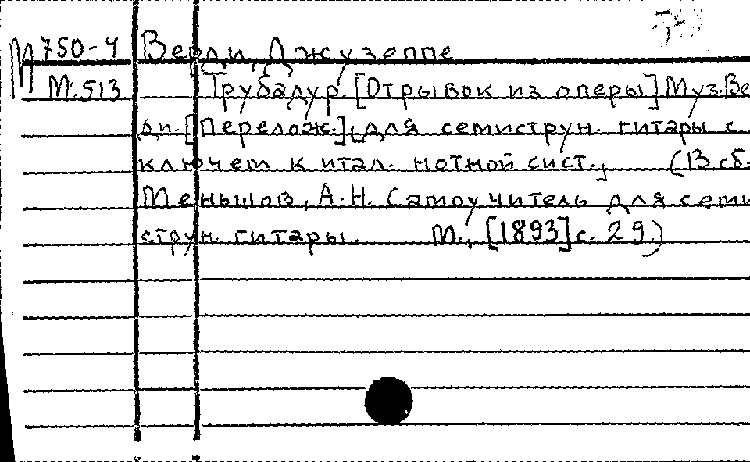 М 750-4 Верди, Джузеппе
М.513 Трубадур. [Отрывок из оперы] Муз. Ве
ди. [Перелож.] для семиструн. гитары с
ключем к итал. нотной сист., (В сб.
Меньшов, А.Н. Самоучитель для семи
струн. гитары. М., [1893] с. 29.)